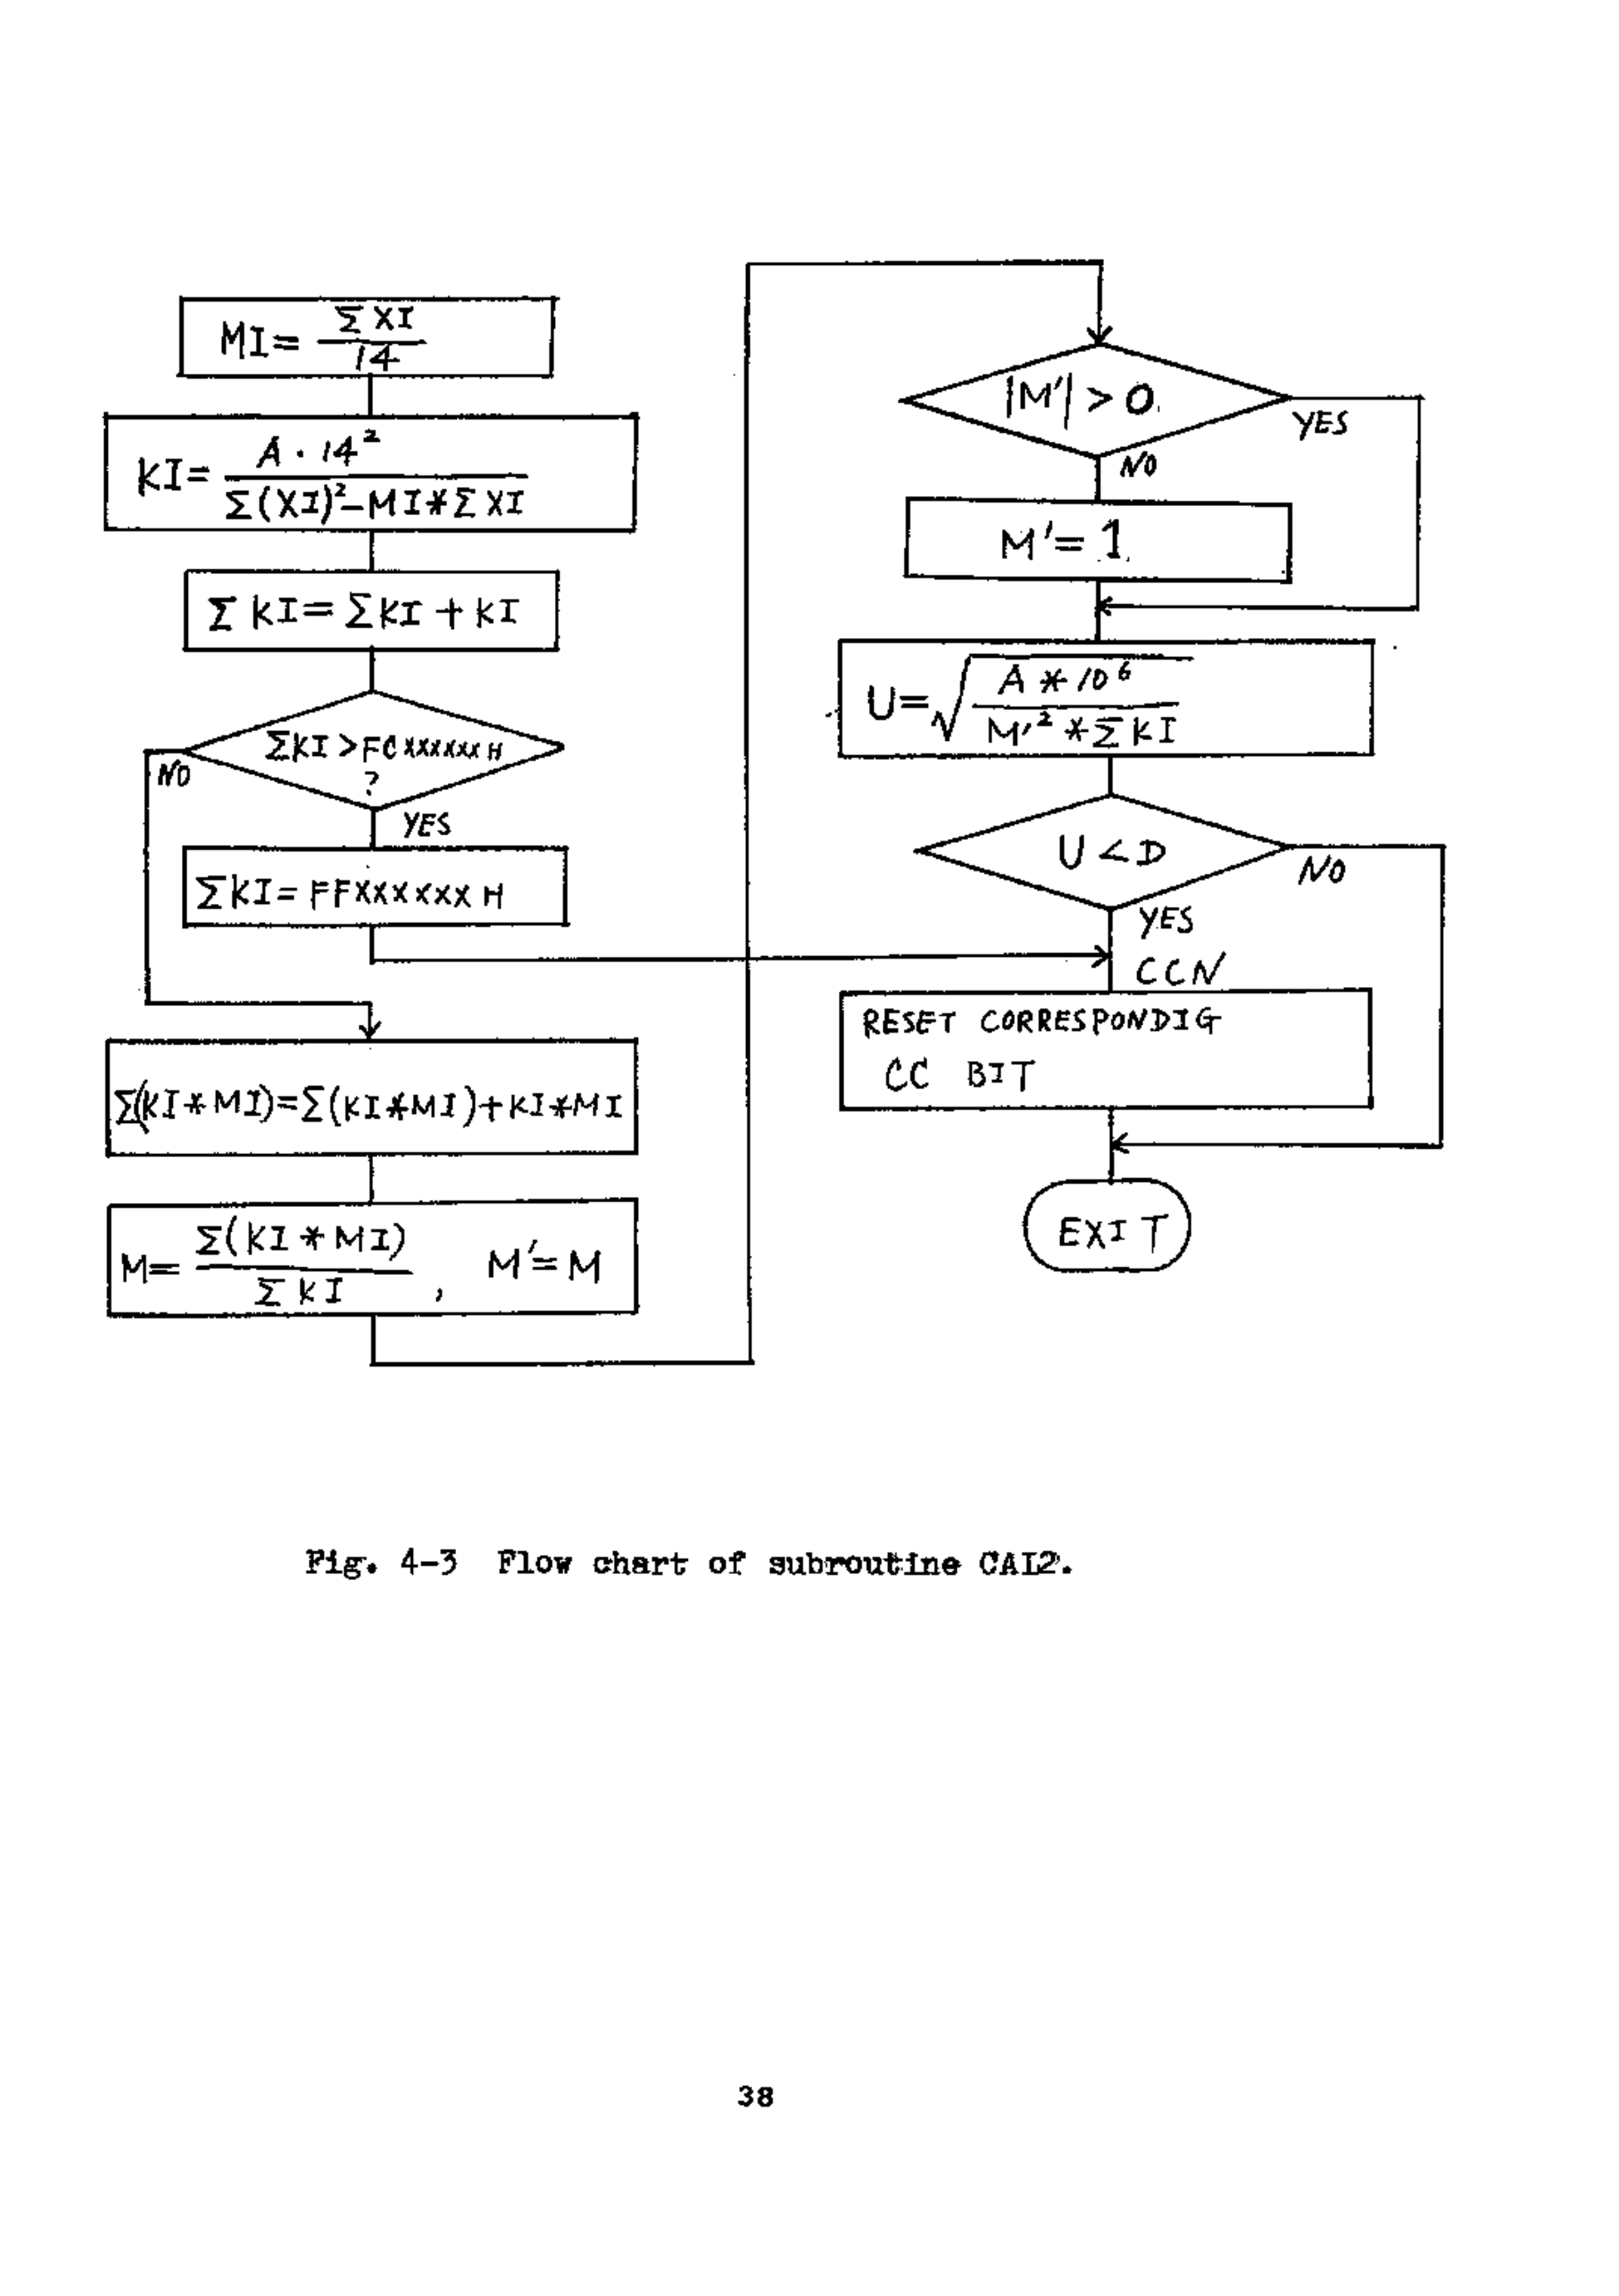 MI= ΣXI
14
KI= A · 14²
Σ(XI)²-MI*ΣXI
ΣKI=ΣKI+KI
ΣKI>FCXXXXXXH
?
NO
YES
ΣKI=FFXXXXXXH
Σ(KI*MI)=Σ(KI*MI)+KI*MI
M= Σ(KI*MI)
ΣKI , M'=M
|M'|>0
YES
NO
M'=1
U=√ A*10⁶
M'²*ΣKI
U<D
NO
YES
CCN
RESET CORRESPONDIG
CC BIT
EXIT
Fig. 4-3 Flow chart of subroutine CAL2.
38